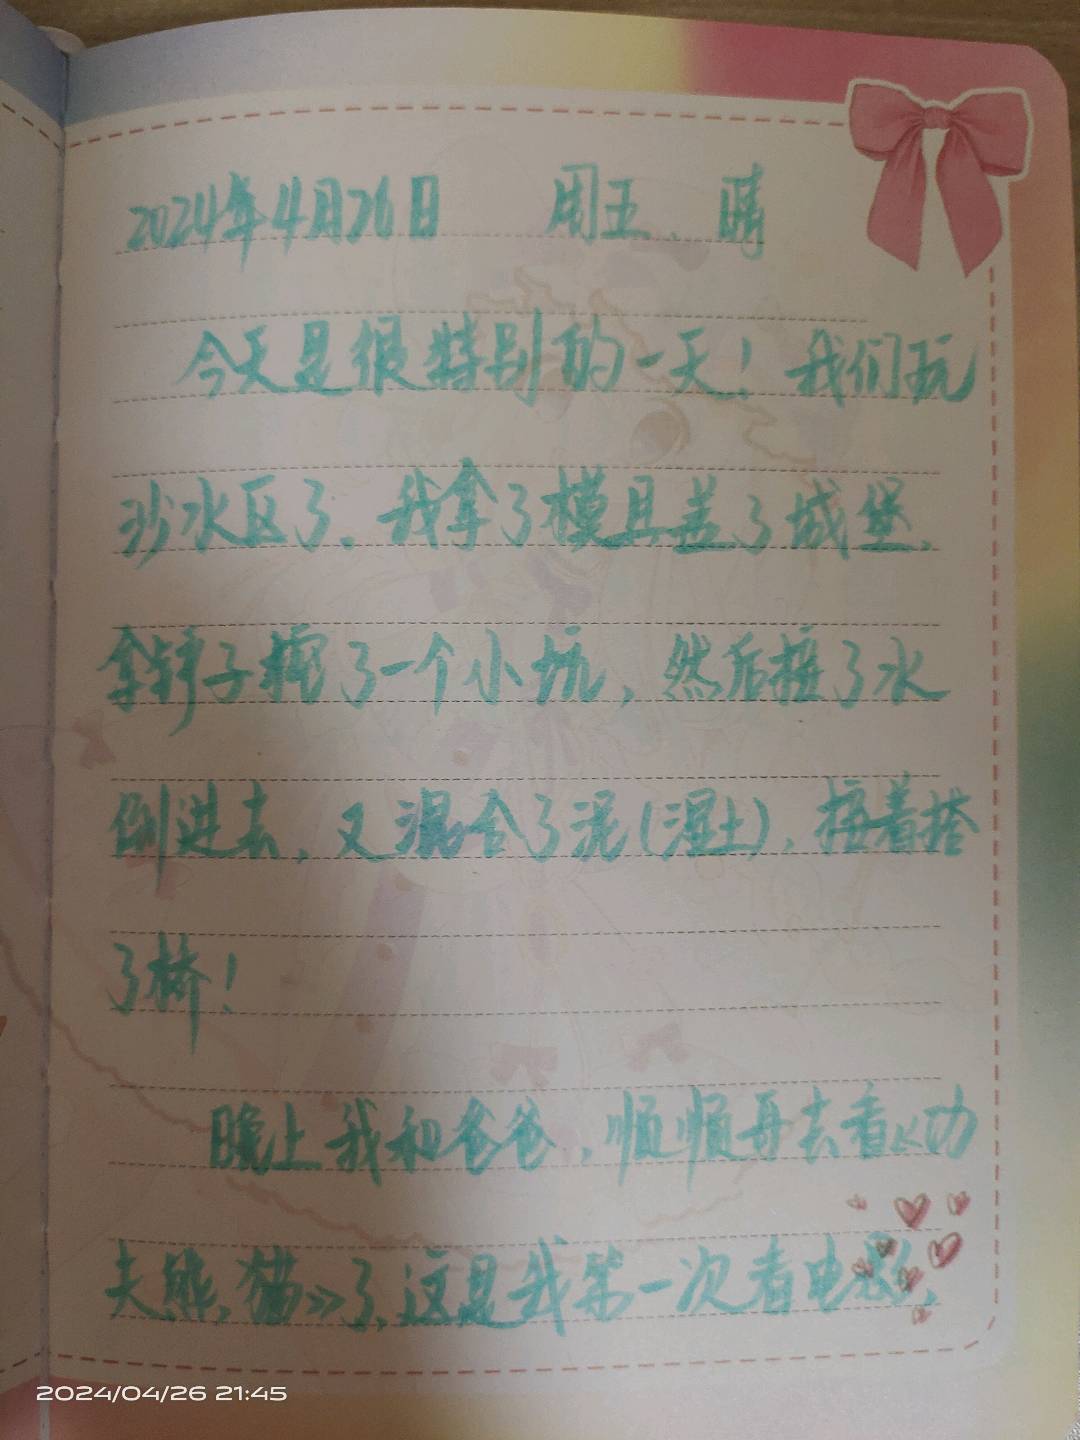 2024年4月26日 周五、晴
今天是很特别的一天！我们玩
沙水区了。我拿了模具盖了城堡，
拿铲子挖了一个小坑，然后接了水
倒进去，又混合了泥(湿土)，接着搭
了桥！
晚上我和爸爸，顺顺再去看《功
夫熊猫》了，这是我第一次看电影，
2024/04/26 21:45